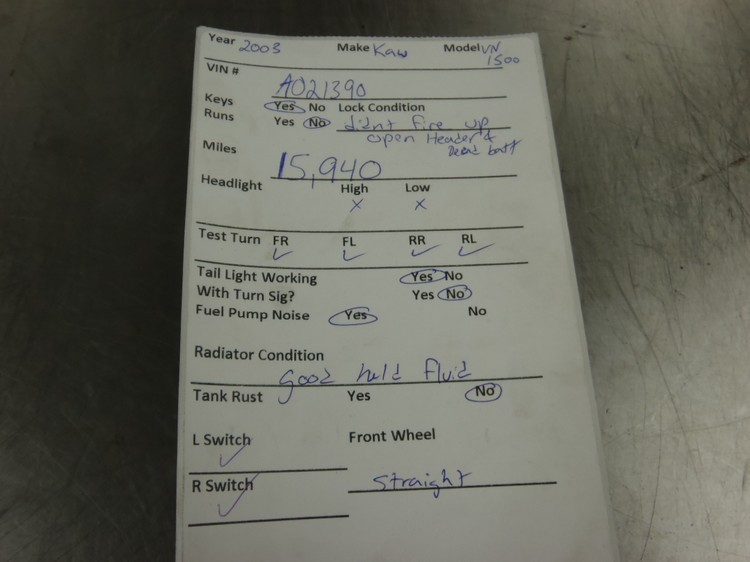 Year 2003 Make Kaw Model VN
1500
VIN # A021390
Keys Yes No Lock Condition
Runs Yes No didnt fire up
open Header &
Dead batt
Miles 15,940
Headlight High Low
x x
Test Turn FR FL RR RL
✓ ✓ ✓ ✓
Tail Light Working Yes No
With Turn Sig? Yes No
Fuel Pump Noise Yes No
Radiator Condition
good held fluid
Tank Rust Yes No
L Switch Front Wheel
✓
R Switch straight
✓